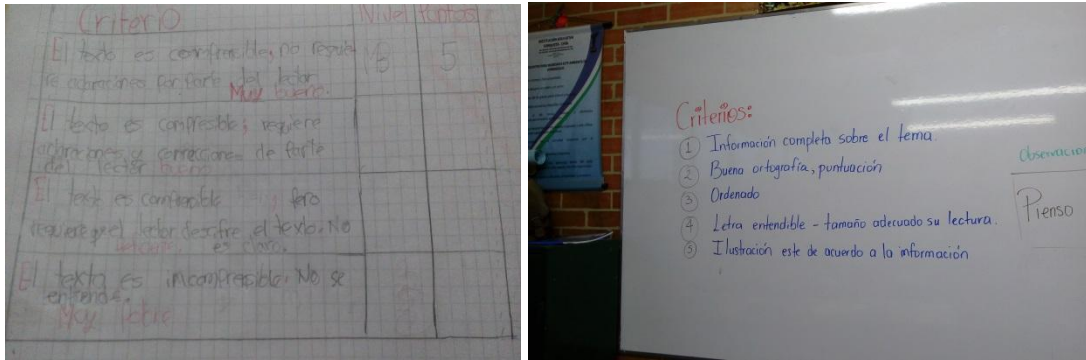 Criterio Nivel Puntos
El texto es comprensible, no requie
re aclaraciones por parte del lector 5
Muy bueno.
El texto es compresible; requiere
aclaraciones y correcciones de parte
del
El texto es comprensible pero
requiere que el lector descifre el texto. No
es claro.
El texto es incompresible. No se
entiende.
Muy Pobre
Criterios:
1 Información completa sobre el tema.
2 Buena ortografía, puntuación
3 Ordenado
4 Letra entendible - tamaño adecuado su lectura.
5 Ilustración este de acuerdo a la información
Observacion
Pienso